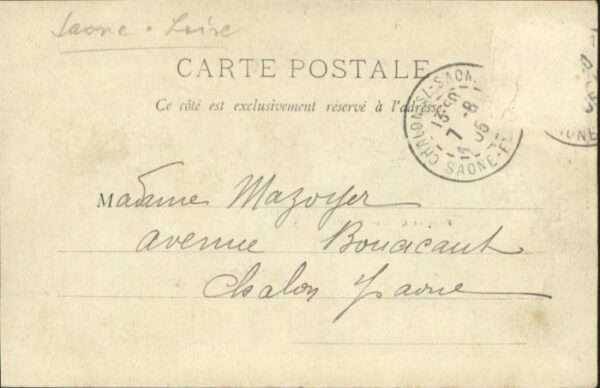 Saone. Loire
CARTE POSTALE
Ce côté est exclusivement réservé à l'adresse
CHALON-S-SAONE
13 50
7 -8
05
SAONE-ET
ONE
Madame Mazoyer
avenue Boucicaut
Chalon s/ Saone